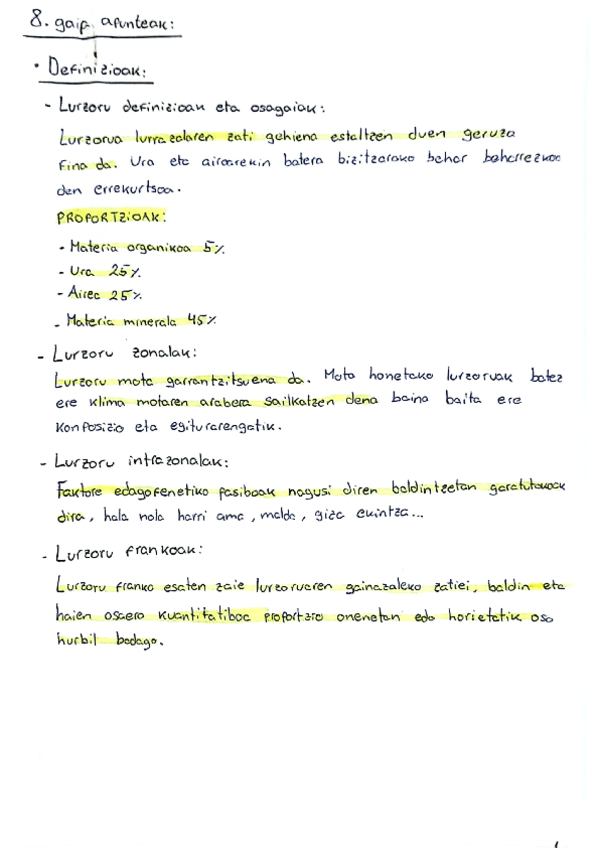 8. gaia apunteak:
• Definizioak:
- Lurzoru definizioak eta osagaiak:
Lurzorua lurrazalaren zati gehiena estaltzen duen geruza
fina da. Ura eta airearekin batera bizitzarako behar beharrezkoa
den errekurtsoa.
PROPORTZIOAK:
- Materia organikoa 5%
- Ura 25%
- Airea 25%
- Materia minerala 45%
- Lurzoru zonalak:
Lurzoru mota garrantzitsuena da. Mota honetako lurzoruak batez
ere klima motaren arabera sailkatzen dena baina baita ere
konposizio eta egiturarengatik.
- Lurzoru intrazonalak:
Faktore edagofenetiko pasiboak nagusi diren baldintzetan garatutakoak
dira, hala nola harri ama, malda, giza ekintza...
- Lurzoru frankoak:
Lurzoru franko esaten zaie lurzoruaren gainazaleko zatiei, baldin eta
haien osaera kuantitatiboa proportzio onenetan edo horietatik oso
hurbil badago.